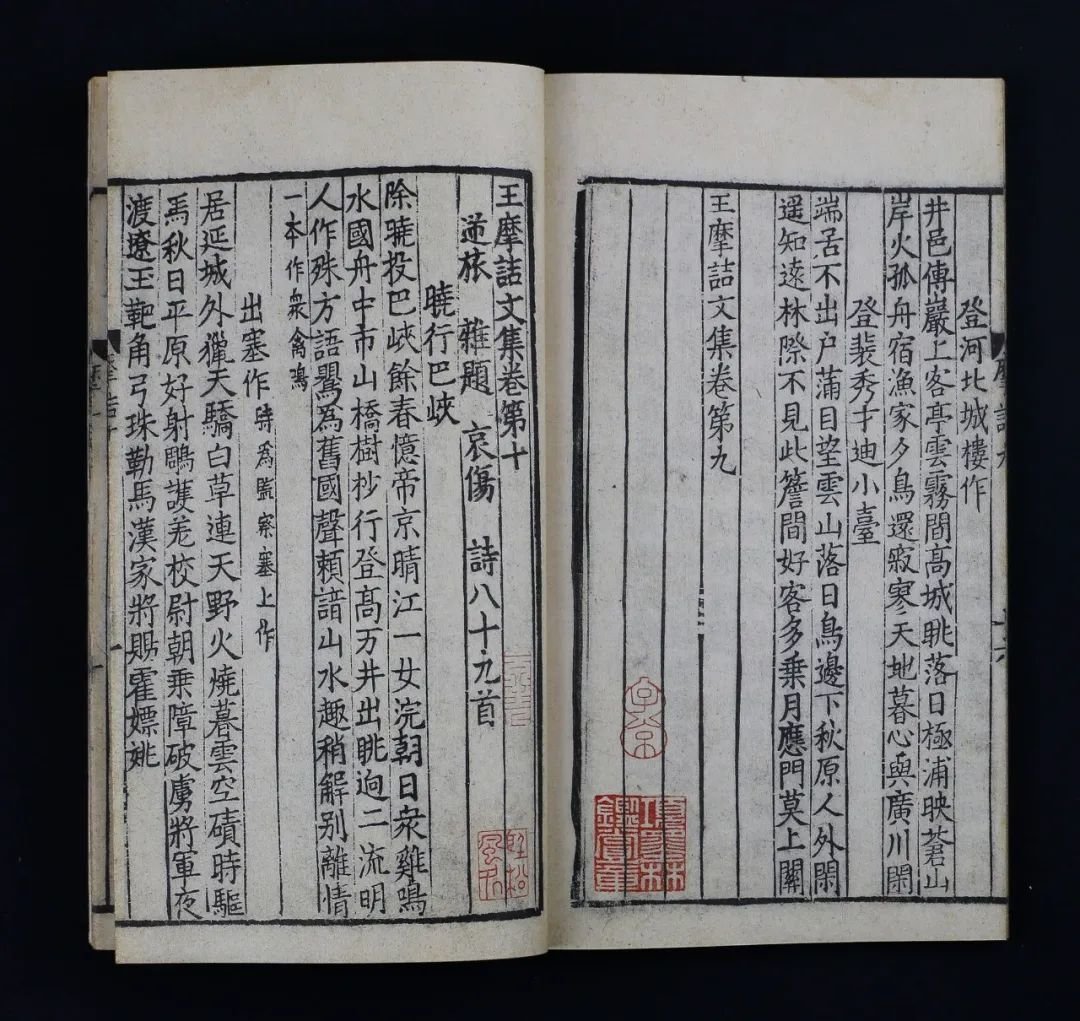 登河北城樓作
井邑傳巖上客亭雲霧間髙城眺落日極浦映蒼山
岸火孤舟宿漁家夕鳥還寂寥天地暮心與廣川閑
登裴秀才迪小臺
端居不出户蒲目望雲山落日鳥邊下秋原人外閑
遥知遠林際不見此簷間好客多乗月應門莫上關
王摩詰文集卷第九
子京
項墨林鑑賞章
王摩詰文集卷第十
逆旅 雜題 哀傷 詩八十九首
曉行巴峽
除曉投巴峽餘春憶帝京晴江一女浣朝日衆雞鳴
水國舟中市山橋樹杪行登髙万井出眺逈二流明
人作殊方語鸎為舊國聲頼諳山水趣稍解别離情
一本作衆禽鳴
出塞作時為監察塞上作
居延城外獵天驕白草連天野火燒暮雲空磧時驅
馬秋日平原好射鵰護羌校尉朝乗障破虜將軍夜
渡遼王靶角弓珠勒馬漢家將賜霍嫖姚